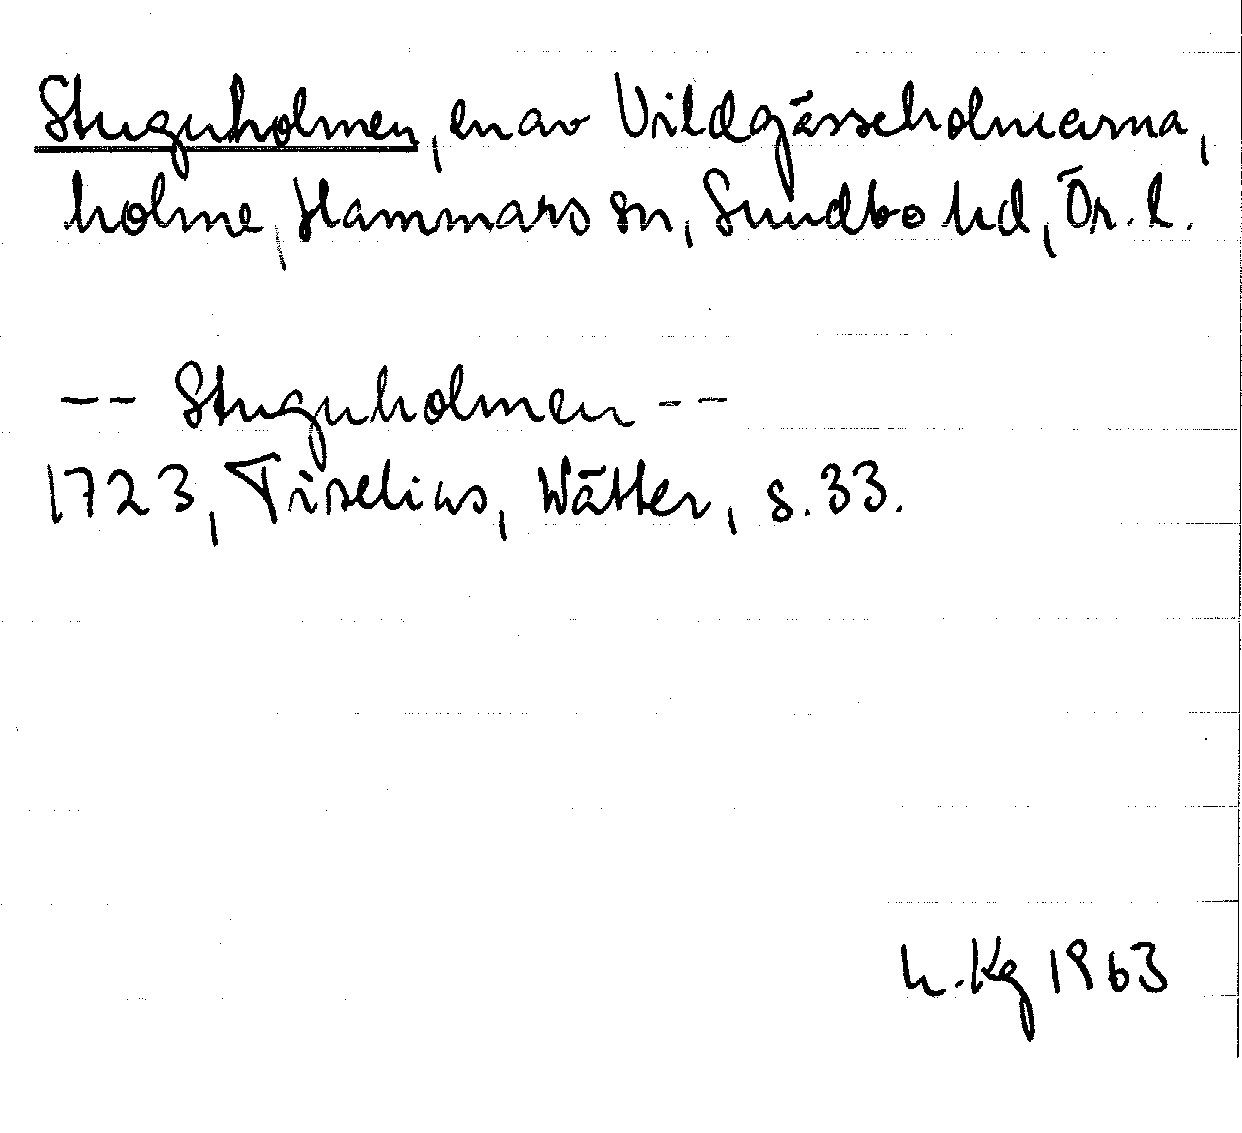 Stuguholmen, en av Vildgässeholmarna,
holme, Hammars sn, Sundbo hd, Ör. l.
-- Stuguholmen --
1723, Tiselius, Wätter, s. 33.
h. Kg 1963